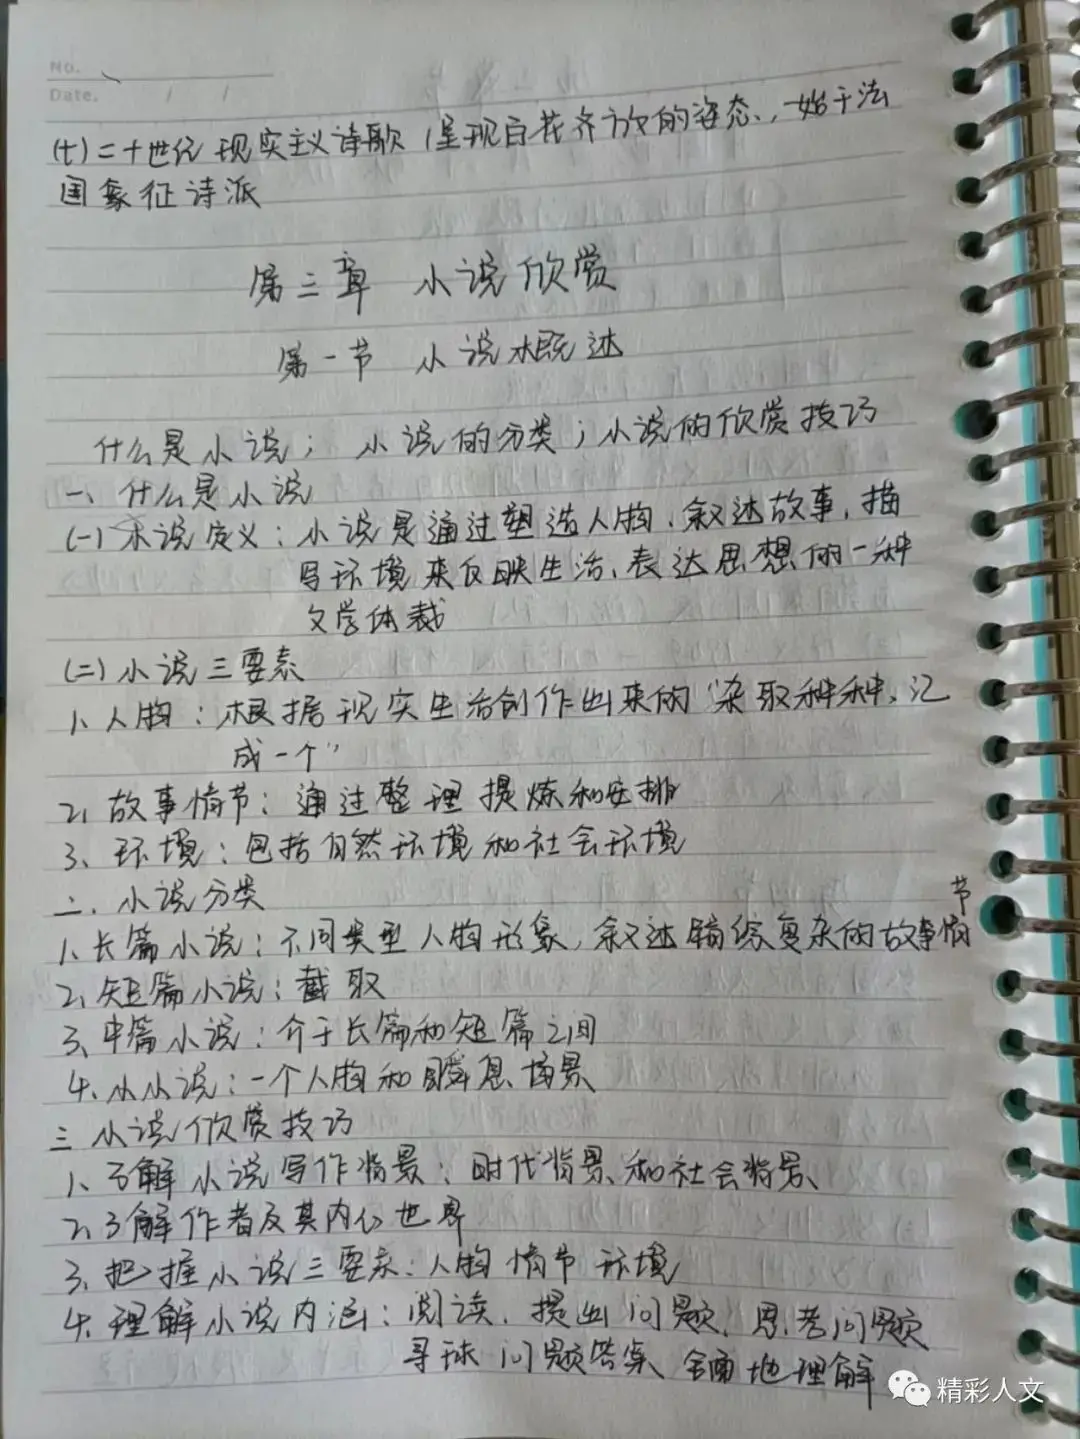 No.
Date. / /
(七)二十世纪现实主义诗歌(呈现百花齐放的姿态,始于法
国象征诗派
第三章 小说欣赏
第一节 小说概述
什么是小说; 小说的分类;小说的欣赏技巧
一、什么是小说
(一)小说定义:小说是通过塑造人物、叙述故事、描
写环境来反映生活、表达思想的一种
文学体裁
(二)小说三要素
1、人物:根据现实生活创作出来的"杂取种种,汇
成一个"
2、故事情节:通过整理提炼和安排
3、环境:包括自然环境和社会环境
二、小说分类
1、长篇小说:不同类型人物形象,叙述错综复杂的故事情节
2、短篇小说:截取
3、中篇小说:介于长篇和短篇之间
4、小小说:一个人物和瞬息场景
三 小说欣赏技巧
1、了解小说写作背景:时代背景和社会背景
2、了解作者及其内心世界
3、把握小说三要素:人物 情节 环境
4、理解小说内涵:阅读、提出问题、思考问题
寻求问题答案 全面地理解
精彩人文